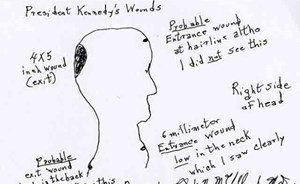 President Kennedy's Wounds
Probable
Entrance wound
at hairline altho
I did not see this
4X5
inch wound
(exit)
Right side
of head
6 millimeter
Entrance wound
low in the neck
which I saw clearly
Probable
exit wound
in the back
this